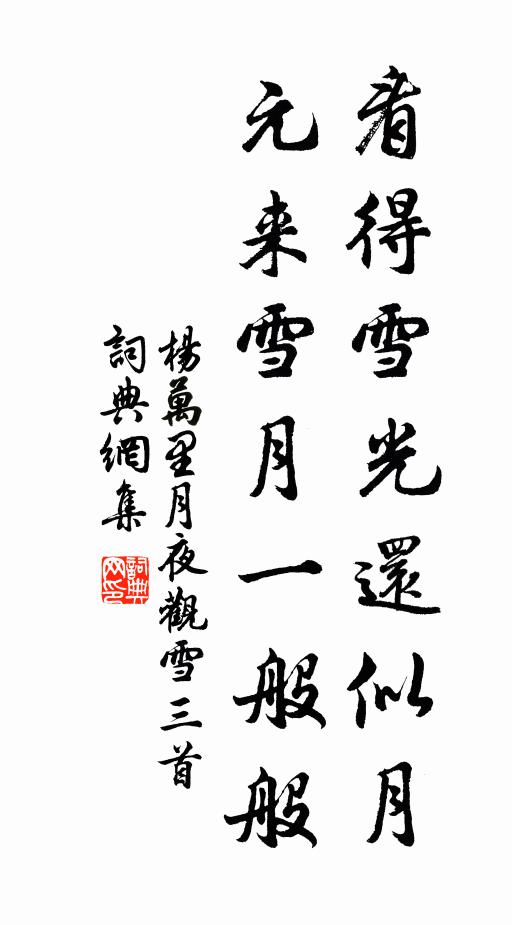 看得雪光還似月
元来雪月一般般
楊萬里月夜觀雪三首
詞典網集
詞典网印